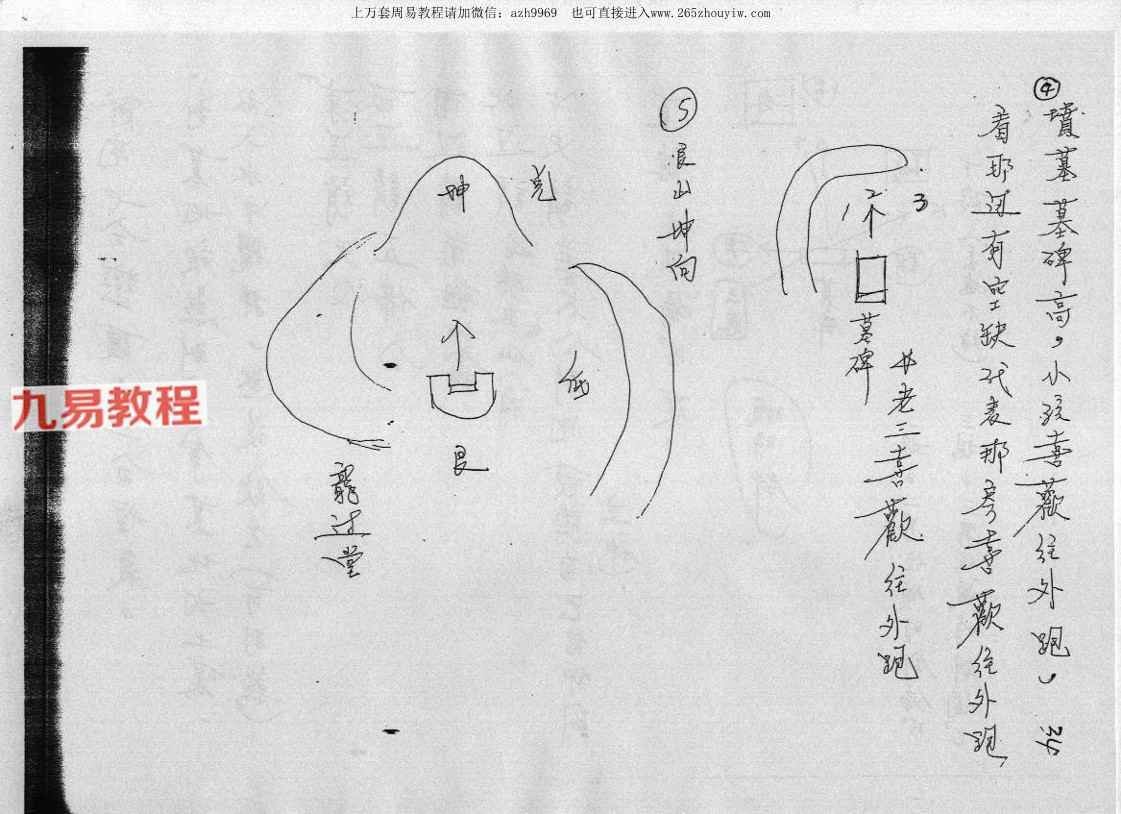 上万套周易教程请加微信：azh9969 也可直接进入www.265zhouyiw.com
④墳墓墓碑高，小孩喜歡往外跑，34
看那过有空缺代表那房喜歡往外跑
1 2 3
个
墓碑
老三喜歡往外跑
⑤艮山坤向
兑
坤
低
艮
龍过堂
九易教程